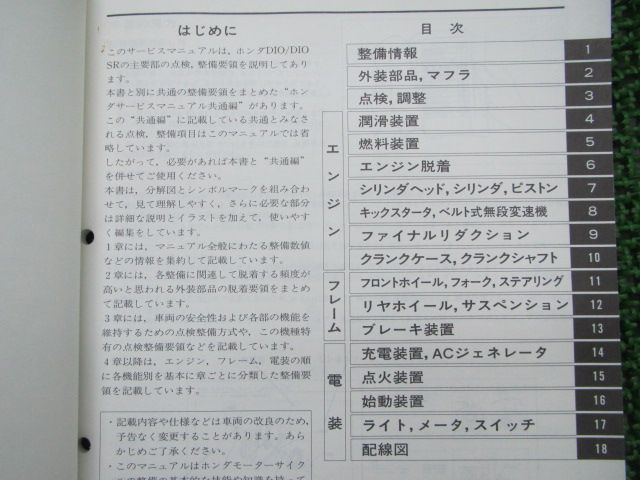 はじめに
このサービスマニュアルは、ホンダDIO/DIO
SRの主要部の点検、整備要領を説明してあり
ます。
本書と別に共通の整備要領をまとめた“ホン
ダサービスマニュアル共通編”があります。
この“共通編”に記載している共通とみなさ
れる点検、整備項目はこのマニュアルでは省
略しています。
したがって、必要があれば本書と“共通編”
を併せてご使用ください。
本書は、分解図とシンボルマークを組み合わ
せて、見て理解しやすく、さらに必要な部分
は詳細な説明とイラストを加えて、使いやす
く編集をしています。
1章には、マニュアル全般にわたる整備数値
などの情報を集約して記載しています。
2章には、各整備に関連して脱着する頻度が
高いと思われる外装部品の脱着要領をまとめ
て記載しています。
3章には、車両の安全性および各部の機能を
維持するための点検整備方式や、この機種特
有の点検整備要領などを記載しています。
4章以降は、エンジン、フレーム、電装の順
に各機能別を基本に章ごとに分類した整備要
領を記載しています。
・記載内容や仕様などは車両の改良のため、
予告なく変更することがあります。あら
かじめご了承ください。
・このマニュアルはホンダモーターサイク
ルの整備の基本的な技能や知識を持って
目次
整備情報 1
外装部品，マフラ 2
点検，調整 3
エンジン
潤滑装置 4
燃料装置 5
エンジン脱着 6
シリンダヘッド，シリンダ，ピストン 7
キックスタータ，ベルト式無段変速機 8
ファイナルリダクション 9
クランクケース，クランクシャフト 10
フレーム
フロントホイール，フォーク，ステアリング 11
リヤホイール，サスペンション 12
ブレーキ装置 13
電装
充電装置，ACジェネレータ 14
点火装置 15
始動装置 16
ライト，メータ，スイッチ 17
配線図 18